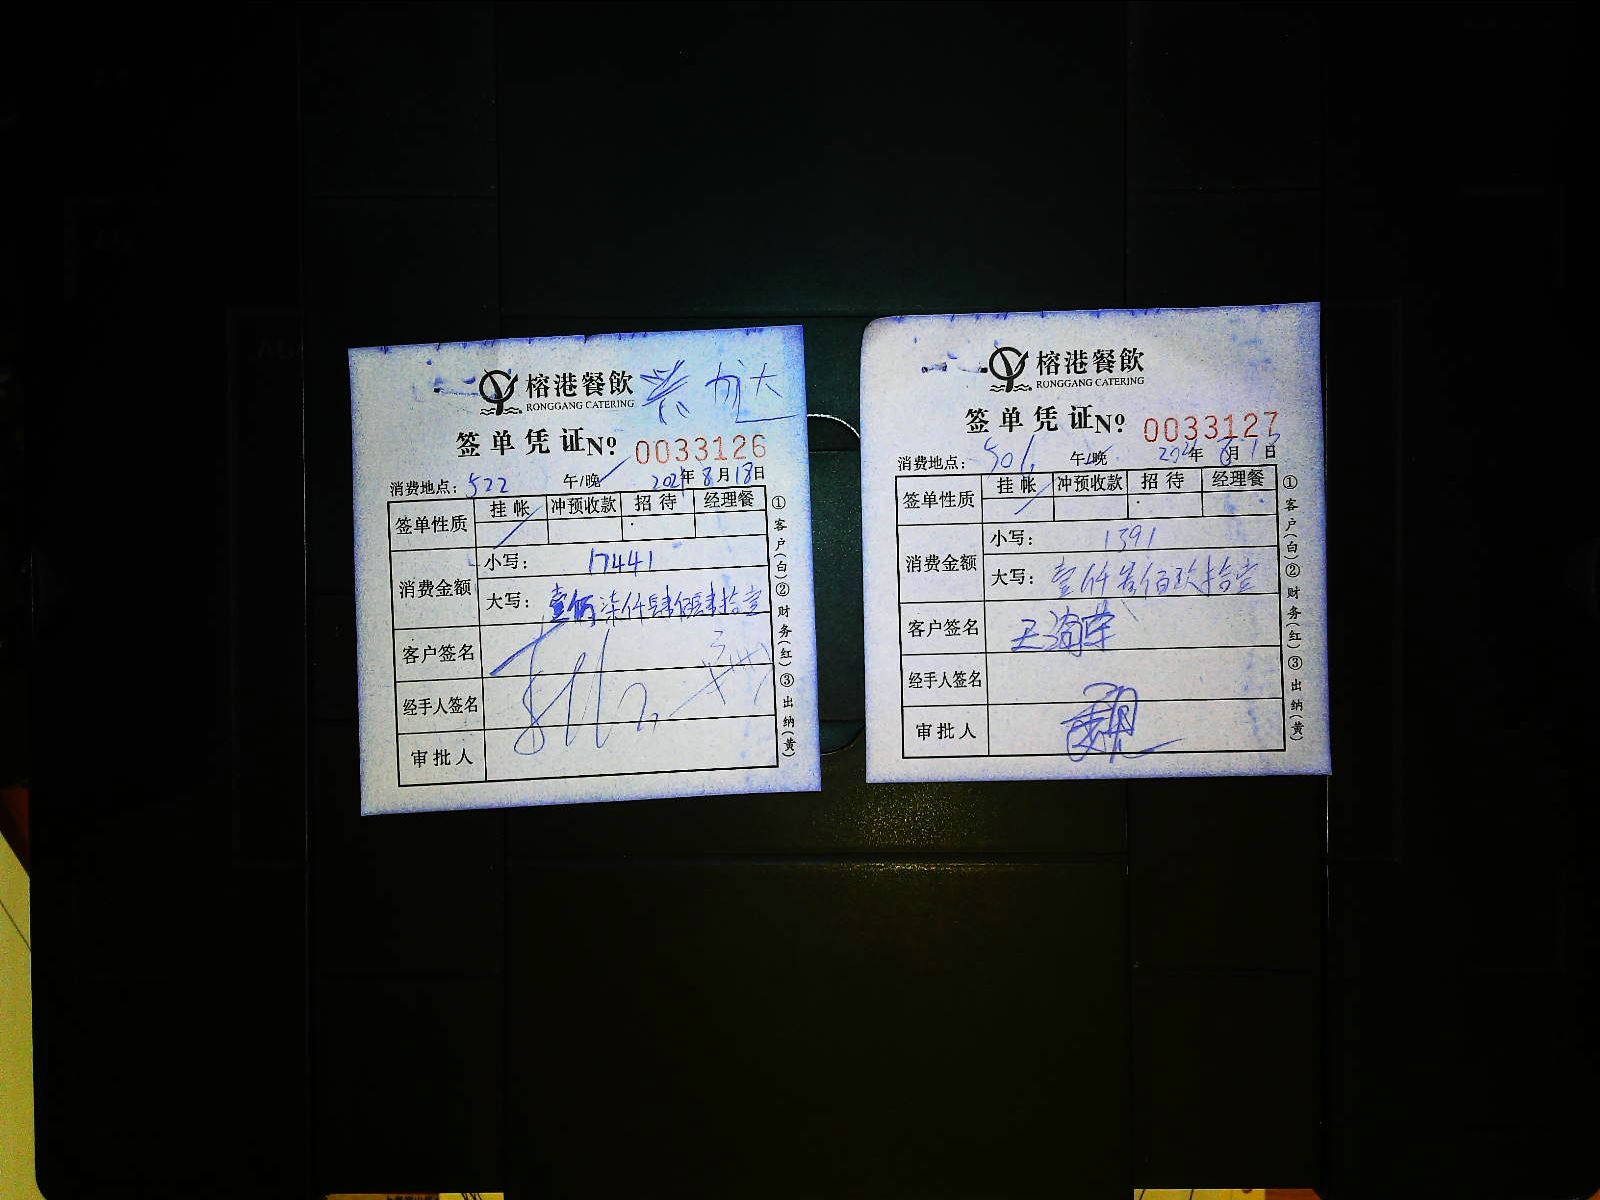 榕港餐飲
RONGGANG CATERING
签单凭证 Nº 0033126
消费地点: 522 午/晚 2024年8月18日
签单性质 挂帐 冲预收款 招待 经理餐
消费金额 小写: 17441
大写: 壹 柒仟肆佰肆拾壹
客户签名
经手人签名
审批人
①客户(白)②财务(红)③出纳(黄)
榕港餐飲
RONGGANG CATERING
签单凭证 Nº 0033127
消费地点: 501 午/晚 2024年8月 日
签单性质 挂帐 冲预收款 招待 经理餐
消费金额 小写: 1391
大写: 壹仟叁佰玖拾壹
客户签名
经手人签名
审批人
①客户(白)②财务(红)③出纳(黄)